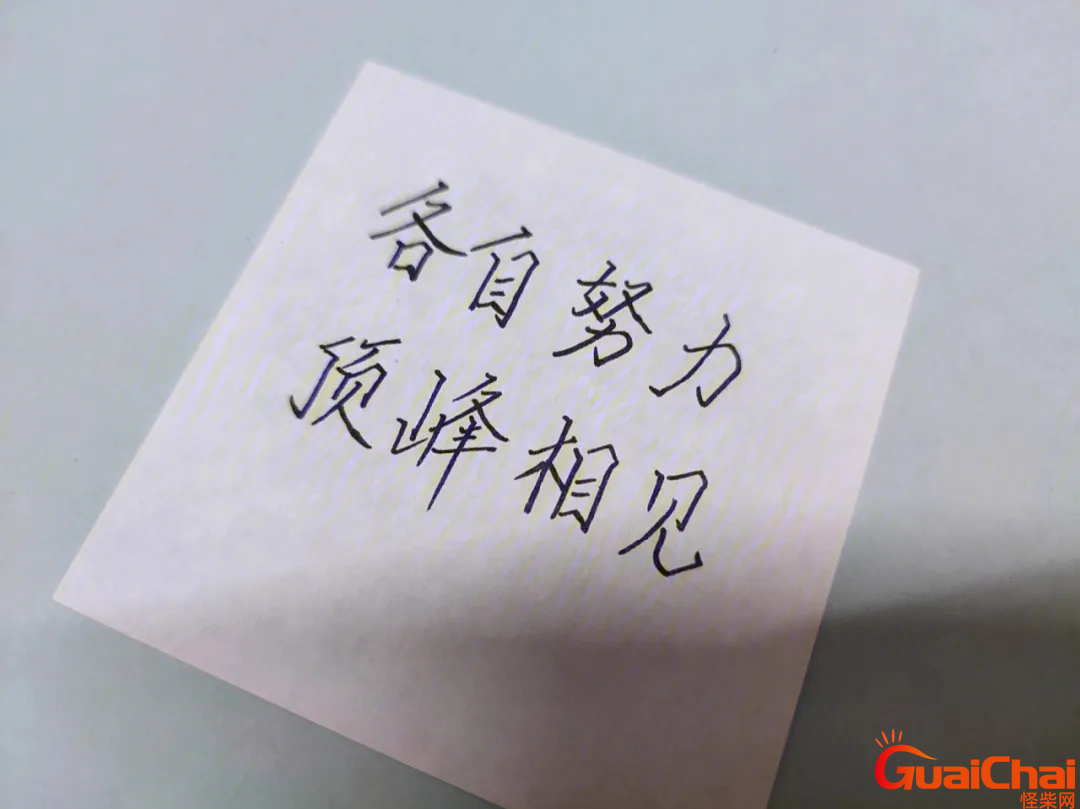 各自努力
顶峰相见
GuaiChai
怪柴网